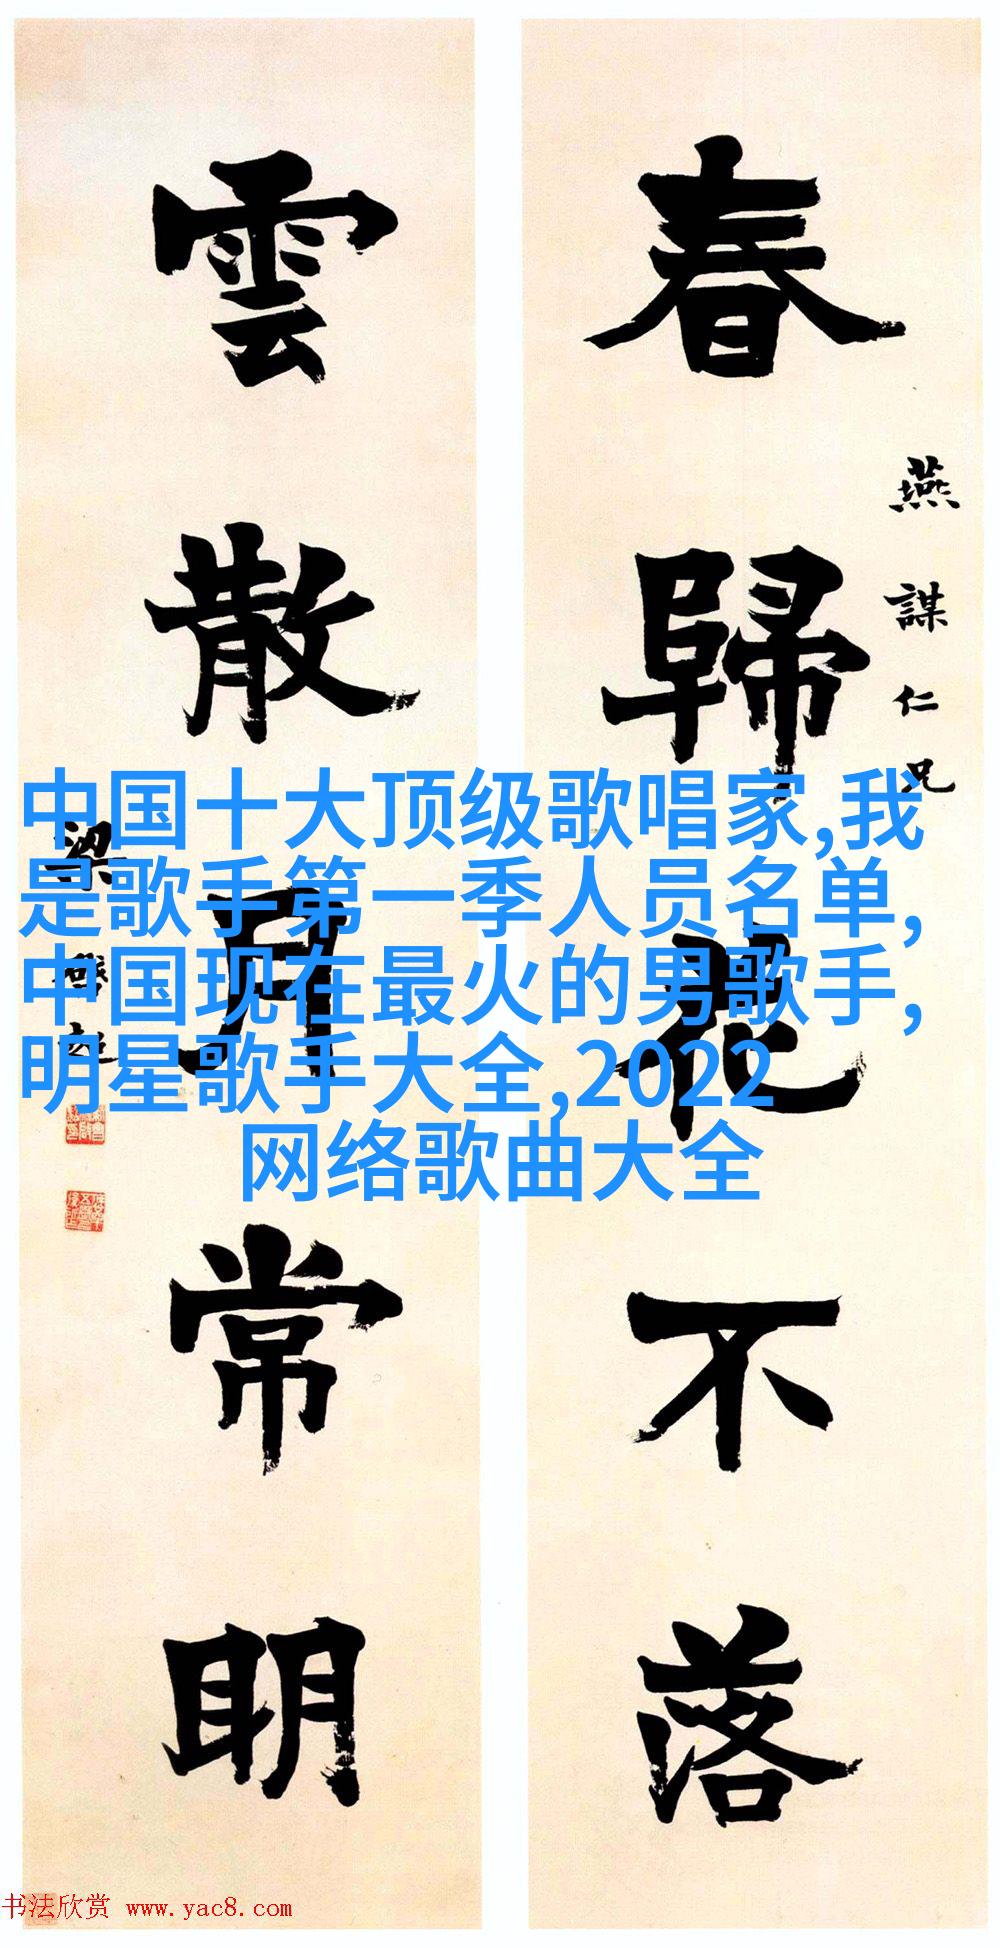 春歸花不落
燕謀仁兄
雲散月常明
梁啟超
中国十大顶级歌唱家,我
是歌手第一季人员名单,
中国现在最火的男歌手,
明星歌手大全,2022
网络歌曲大全
书法欣赏 www.yac8.com